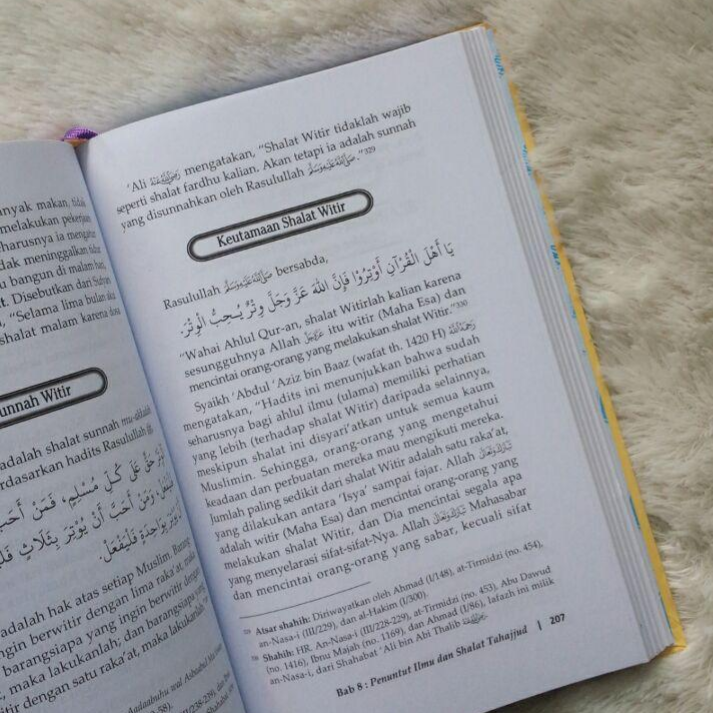 anyak makan, tidak
melakukan pekerjaan
eharusnya ia mengatur
dak meninggalkan tidur
u bangun di malam hari,
t. Disebutkan dari Sufyan
a, "Selama lima bulan aku
shalat malam karena dosa
unnah Witir
adalah shalat sunnah mu-akkadah
erdasarkan hadits Rasulullah ﷺ,
حَقٌّ عَلَى كُلِّ مُسْلِمٍ، فَمَنْ أَحَبَّ
وَمَنْ أَحَبَّ أَنْ يُوْتِرَ بِثَلَاثٍ
يُوْتِرَ بِوَاحِدَةٍ فَلْيَفْعَلْ.
adalah hak atas setiap Muslim. Barang-
ngin berwitir dengan lima raka'at, maka
barangsiapa yang ingin berwitir dengan
, maka lakukanlah; dan barangsiapa
itir dengan satu raka'at, maka lakukanlah."
'Ali رضي الله عنه mengatakan, "Shalat Witir tidaklah wajib
seperti shalat fardhu kalian. Akan tetapi ia adalah sunnah
yang disunnahkan oleh Rasulullah ﷺ."329
Keutamaan Shalat Witir
Rasulullah ﷺ bersabda,
يَا أَهْلَ الْقُرْآنِ أَوْتِرُوْا فَإِنَّ اللهَ عَزَّ وَجَلَّ وِتْرٌ يُحِبُّ الْوِتْرَ.
"Wahai Ahlul Qur-an, shalat Witirlah kalian karena
sesungguhnya Allah عز وجل itu witir (Maha Esa) dan
mencintai orang-orang yang melakukan shalat Witir."330
Syaikh 'Abdul 'Aziz bin Baaz (wafat th. 1420 H) رحمه الله
mengatakan, "Hadits ini menunjukkan bahwa sudah
seharusnya bagi ahlul ilmu (ulama) memiliki perhatian
yang lebih (terhadap shalat Witir) daripada selainnya,
meskipun shalat ini disyari'atkan untuk semua kaum
Muslimin. Sehingga, orang-orang yang mengetahui
keadaan dan perbuatan mereka mau mengikuti mereka.
Jumlah paling sedikit dari shalat Witir adalah satu raka'at,
yang dilakukan antara 'Isya' sampai fajar. Allah
adalah witir (Maha Esa) dan mencintai orang-orang yang
melakukan shalat Witir, dan Dia mencintai segala apa
yang menyelarasi sifat-sifat-Nya. Allah Mahasabar
dan mencintai orang-orang yang sabar, kecuali sifat
329 Atsar shahih: Diriwayatkan oleh Ahmad (I/148), at-Tirmidzi (no. 454),
an-Nasa-i (III/229), dan al-Hakim (I/300).
330 Shahih: HR. An-Nasa-i (III/228-229), at-Tirmidzi (no. 453), Abu Dawud
(no. 1416), Ibnu Majah (no. 1169), dan Ahmad (I/86), lafazh ini milik
an-Nasa-i, dari Shahabat 'Ali bin Abi Thalib
Bab 8 : Penuntut Ilmu dan Shalat Tahajjud | 207